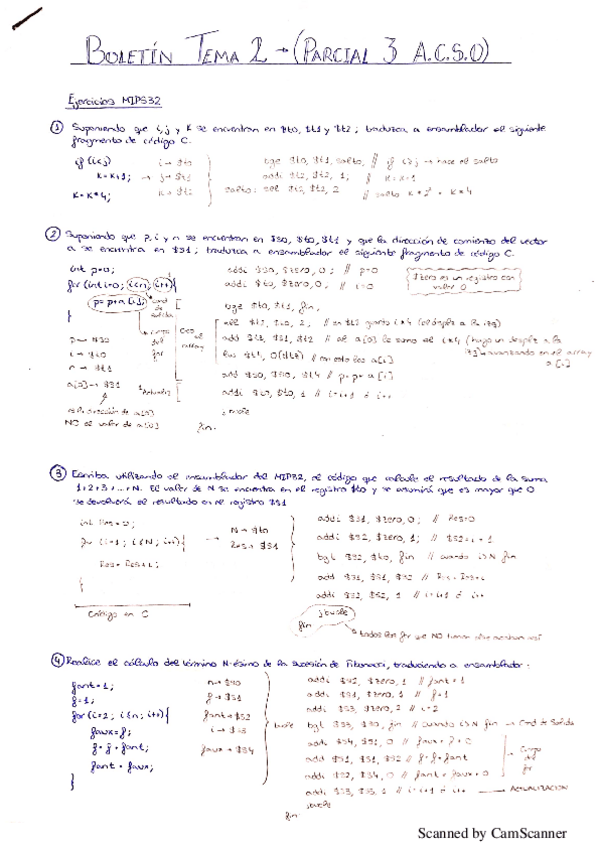 BOLETÍN TEMA 2 → (PARCIAL 3 A.C.S.O)
Ejercicios MIPS32
1 Suponiendo que i, j y K se encuentran en $t0, $t1 y $t2; traduzca a ensamblador el siguiente
fragmento de código C.
if (i<j) i → $t0 bge $t0, $t1, salto, // if i≥j → hace el salto
K = K+1; → j → $t1 addi $t2, $t2, 1; // K = K+1
K = K*4; K → $t2 salto: sll $t2, $t2, 2 // salto K*2² = K*4
2 Suponiendo que p, i y n se encuentran en $s0, $t0, $t1 y que la dirección de comienzo del vector
a se encuentra en $s1; traduzca a ensamblador el siguiente fragmento de código C.
int p=0; addi $s0, $zero, 0; // p=0 $zero es un registro con
for (int i=0; i<n; i++){ addi $t0, $zero, 0; // i=0 valor 0
p = p + a[i]; cond de salida bge $t0, $t1, fin,
} cuerpo del for sll $t2, $t0, 2;
p → $s0 add $t3, $s1, $t2
i → $t0 array
n → $t1 lw $t4, 0($t3) // a[i]
a[0] → $s1 add $s0, $s0, $t4 // p = p + a[i]
addi $t0, $t0, 1 // i=i+1 ó i++
es la dirección de a[0] j bucle
NO el valor de a[0] fin:
3 Escriba utilizando el ensamblador del MIPS32, el código que calcule el resultado de la suma
1+2+3+...+N. El valor de N se encuentra en el registro $t0 y se asumirá que es mayor que 0
se devolverá el resultado en el registro $s1
int Res = 0; N → $t0 addi $s1, $zero, 0; // Res=0
for (i=1; i≤N; i++){ → Res → $s1 addi $s2, $zero, 1; // $s2=i=1
Res = Res+i; bgt $s2, $t0, fin // cuando i>N fin
} add $s1, $s1, $s2 // Res = Res+i
addi $s2, $s2, 1 // i=i+1 ó i++
Código en C j bucle
fin
4 Realice el cálculo del término N-ésimo de la sucesión de Fibonacci, traduciendo a ensamblador:
fant = 1; n → $s0 addi $s2, $zero, 1 // fant=1
f = 1; f → $s1 addi $s1, $zero, 1 // f=1
for (i=2; i≤n; i++){ fant → $s2 addi $s3, $zero, 2 // i=2
faux = f; i → $s3 bucle bgt $s3, $s0, fin // cuando i>N fin → Cond de Salida
f = f + fant; faux → $s4 addi $s4, $s1, 0 // faux = f + 0
fant = faux; add $s1, $s1, $s2 // f = f + fant Cuerpo del for
} addi $s2, $s4, 0 // fant = faux + 0
addi $s3, $s3, 1 // i=i+1 ó i++ → ACTUALIZACIÓN
j bucle
fin:
Scanned by CamScanner